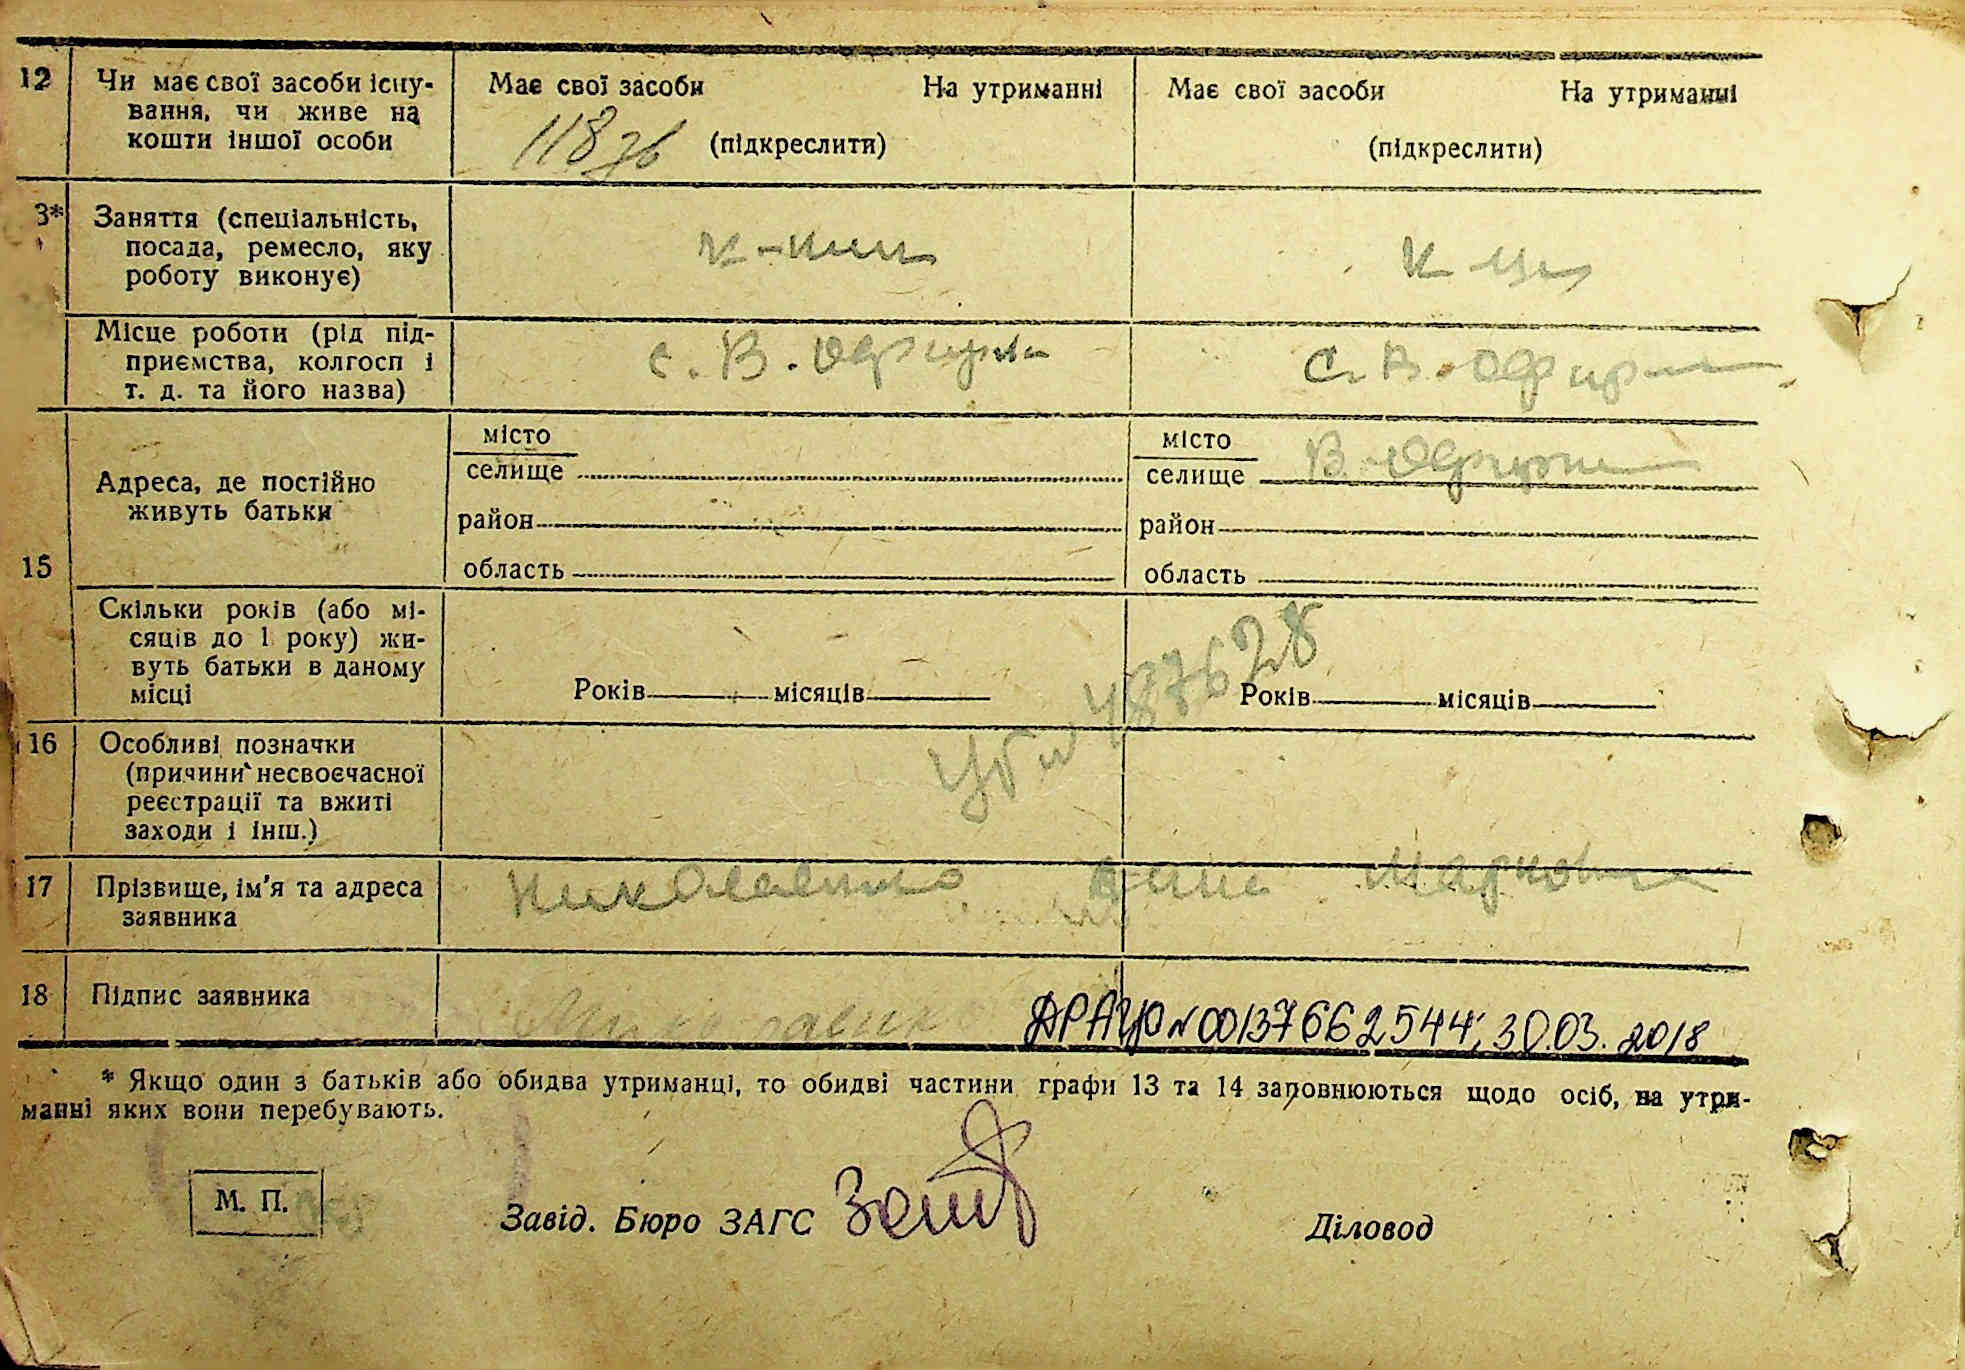 12 Чи має свої засоби існу- Має свої засоби На утриманні Має свої засоби На утриманні
вання, чи живе на
кошти іншої особи 118 (підкреслити) (підкреслити)
3* Заняття (спеціальність,
посада, ремесло, яку
роботу виконує)
Місце роботи (рід під-
приємства, колгосп і с. В. с. В.
т. д. та його назва)
місто місто
селище селище В.
Адреса, де постійно
живуть батьки
район район
15 область область
Скільки років (або мі-
сяців до 1 року) жи-
вуть батьки в даному
місці Років місяців Років місяців
№ 487628
16 Особливі позначки
(причини несвоєчасної
реєстрації та вжиті
заходи і інш.)
17 Прізвище, ім'я та адреса Николаенко Анна Марковна
заявника
18 Підпис заявника
ДРАЦС № 00137662544; 30.03.2018
* Якщо один з батьків або обидва утриманці, то обидві частини графи 13 та 14 заповнюються щодо осіб, на утри-
манні яких вони перебувають.
М. П. Завід. Бюро ЗАГС Діловод